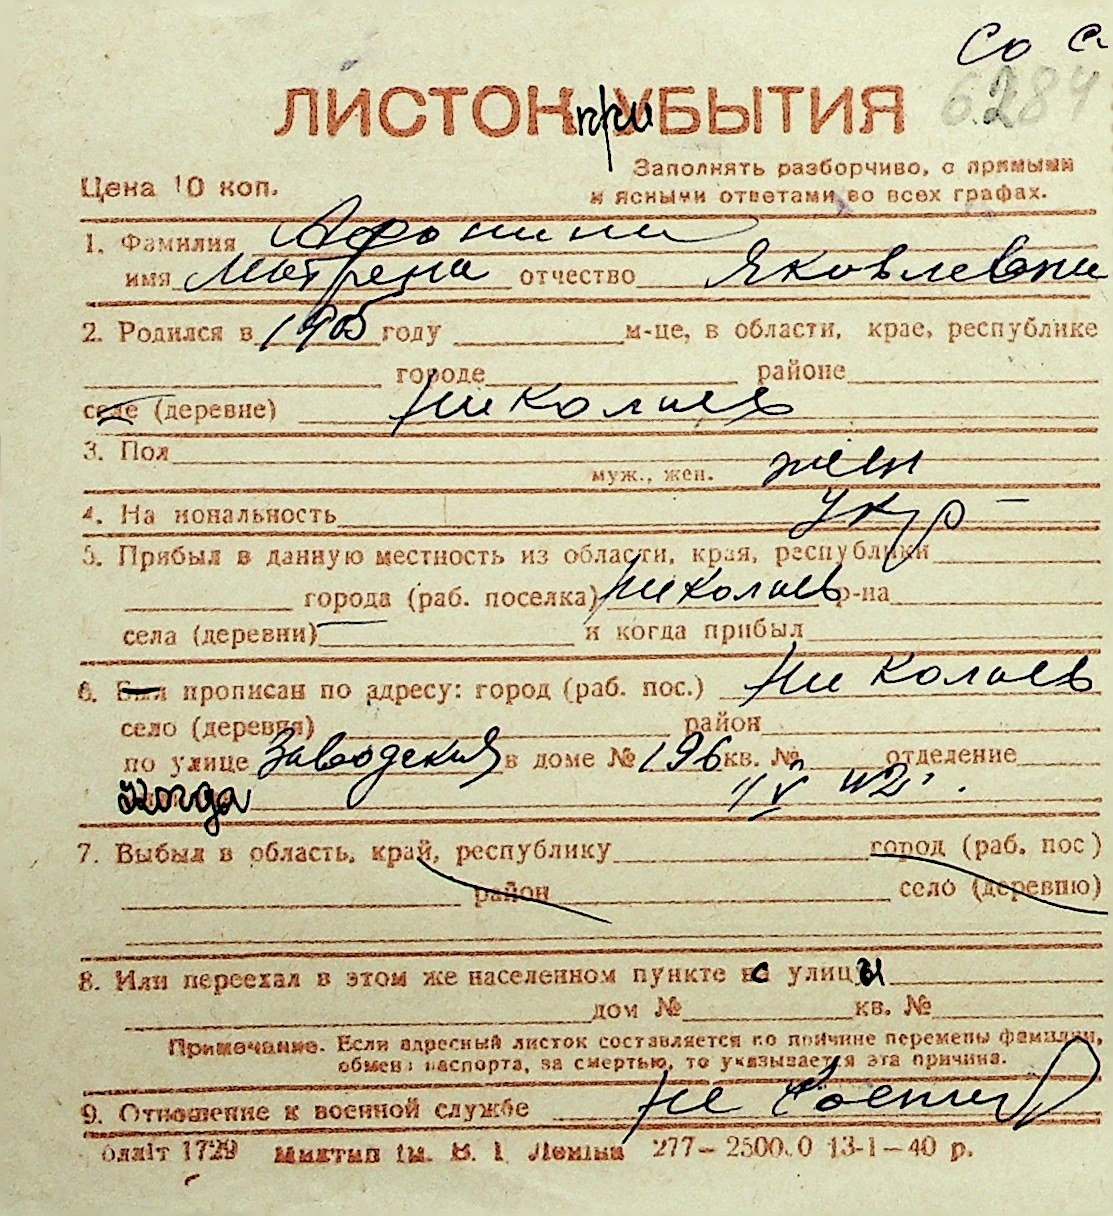 Со
6284
ЛИСТОК при УБЫТИЯ
Заполнять разборчиво, с прямыми
Цена 10 коп.
и ясными ответами во всех графах.
1. Фамилия Афонина
имя Матрена отчество Яковлевна
2. Родился в 1905 году м-це, в области, крае, республике
городе районе
селе (деревне) Николаев
3. Пол
муж., жен. жен
4. На иональность Укр
5. Прибыл в данную местность из области, края, республики
города (раб. поселка) Николаев р-на
села (деревни) и когда прибыл
6. Был прописан по адресу: город (раб. пос.) Николаев
село (деревня) район
по улице Заводская в доме № 196 кв. № отделение
когда 1/V 42.
7. Выбыл в область, край, республику город (раб. пос)
район село (деревню)
8. Или переехал в этом же населенном пункте с улицы
дом № кв. №
Примечание. Если адресный листок составляется по причине перемены фамилии,
обмена паспорта, за смертью, то указывается эта причина.
9. Отношение к военной службе не военнообр
блліт 1729 Миктип ім. В. І Леніна 277—2500.0 13-1-40 р.